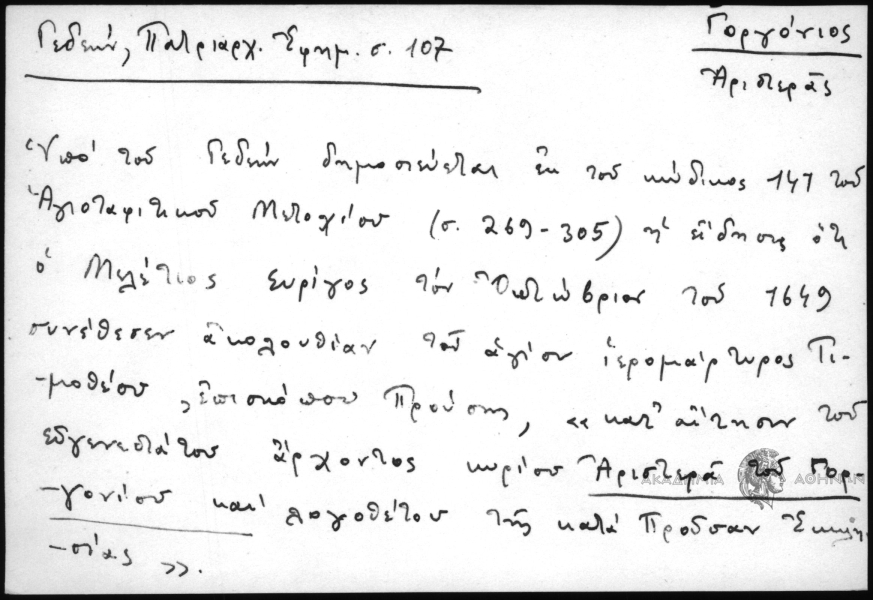 Γεδεών, Πατριαρχ. Ἐφημ. σ. 107
Γοργόνιος
Ἀριστερᾶς
Ὑπό τοῦ Γεδεών δημοσιεύεται ἐκ τοῦ κώδικος 147 τοῦ
Ἁγιοταφιτικοῦ Μετοχίου (σ. 269-305) ἡ εἴδησις ὅτι
ὁ Μελέτιος Συρίγος τόν Ὀκτώβριον τοῦ 1649
συνέθεσεν ἀκολουθίαν τοῦ ἁγίου ἱερομάρτυρος Τι-
-μοθέου, Ἐπισκόπου Προύσης, «κατ' αἴτησιν τοῦ
εὐγενεστάτου ἄρχοντος κυρίου Ἀριστερᾶ τοῦ Γορ-
-γονίου καί λογοθέτου τῆς κατά Προῦσαν Ἐκκλη-
-σίας».
ΑΚΑΔΗΜΙΑ ΑΘΗΝΩΝ